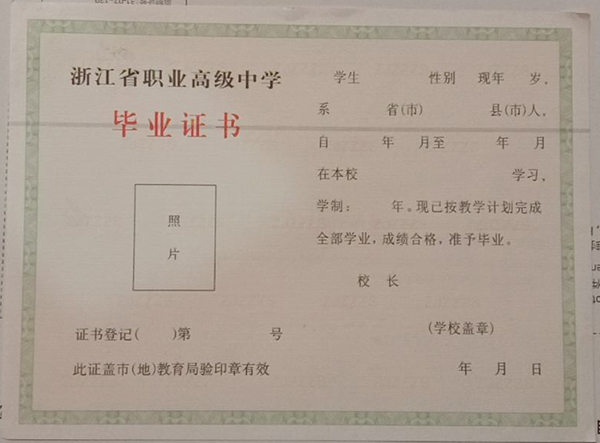 浙江省职业高级中学
毕业证书
照
片
证书登记( )第 号
此证盖市(地)教育局验印章有效
学生 性别 现年 岁,
系 省(市) 县(市)人,
自 年 月至 年 月
在本校 学习,
学制: 年。现已按教学计划完成
全部学业,成绩合格,准予毕业。
校 长
(学校盖章)
年 月 日